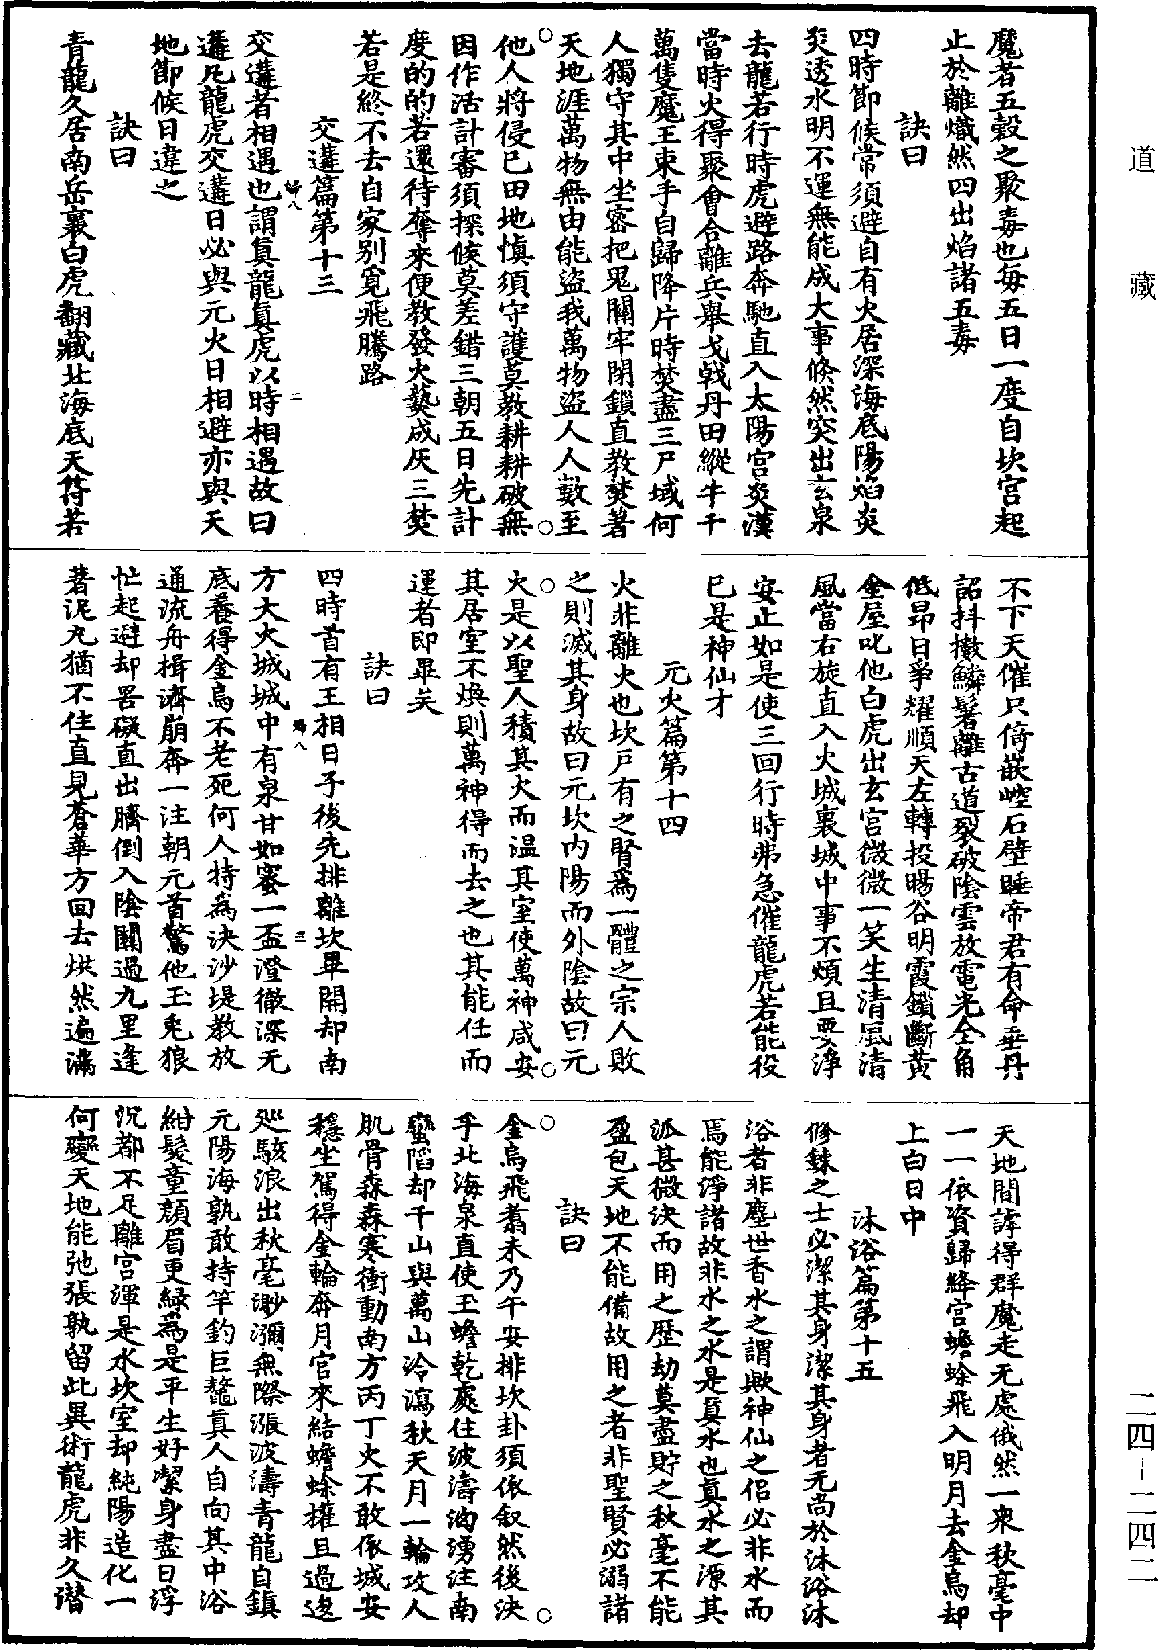 道藏
魔者五穀之聚毒也每五日一度自坎宮起
止於離熾然四出焰諸五毒
訣曰
四時節候常須避自有火居深海底陽焰炎
炎透水明不運無能成大事倏然突出玄泉
去龍若行時虎避路奔馳直入太陽宮炎漢
當時火得聚會合離兵舉戈戟丹田縱牛千
萬隻魔王束手自歸降片時焚盡三尸域何
人獨守其中坐密把鬼關牢閉鎖直教焚著
天地涯萬物無由能盜我萬物盜人人數至
他人將侵已田地慎須守護莫教耕耕破無
因作活計審須探候莫差錯三朝五日先計
度的的若還待奪來便教發火爇成灰三焚
若是終不去自家別覓飛騰路
交遘篇第十三
交遘者相遇也謂真龍真虎以時相遇故曰
遘凡龍虎交遘日必與元火日相避亦與天
地節候日違之
訣曰
青龍久居南岳裏白虎翻藏北海底天符若
不下天催只倚嵌崆石壁睡帝君有命垂丹
詔抖擻鱗髯離古道裂破陰雲放電光全角
低昂日爭耀順天左轉投暘谷明霞鑽斷黃
金屋叱他白虎出玄宮微微一笑生清風清
風當右旋直入火城裏城中事不煩且要淨
安止如是使三回行時弗急催龍虎若能役
已是神仙才
元火篇第十四
火非離火也坎戶有之腎為一體之宗人敗
之則滅其身故曰元坎內陽而外陰故曰元
火是以聖人積其火而溫其室使萬神咸安
其居室不煥則萬神得而去之也其能任而
運者即畢矣
訣曰
四時首有王相日子後先排離坎畢開却南
方大火城城中有泉甘如蜜一盃澄徹深无
底養得金烏不老死何人持為決沙堤教放
通流舟揖濟崩奔一注朝元首驚他玉兔狼
忙起避却罟礙直出臍倒入陰關過九里逢
著泥丸猶不住直見蒼華方回去烘然遍滿
天地間諱得群魔走无處俄然一束秋毫中
一一依資歸絳宮蟾蜍飛入明月去金烏却
上白日中
沐浴篇第十五
修鍊之士必潔其身潔其身者无尚於沐浴沐
浴者非塵世香水之謂歟神仙之侶必非水而
焉能淨諸故非水之水是真水也真水之源其
派甚微決而用之歷劫莫盡貯之秋毫不能
盈包天地不能備故用之者非聖賢必溺諸
訣曰
金烏飛翥未乃午安排坎卦須依敘然後決
乎北海泉直使玉蟾乾處住波濤洶湧注南
蠻陷却千山與萬山冷瀉秋天月一輪攻人
肌骨森森寒衝動南方丙丁火不敢依城安
穩坐駕得金輪奔月宮來結蟾蜍權且過逡
巡駭浪出秋毫渺瀰無際漲波濤青龍自鎮
元陽海孰敢持竿釣巨鼇真人自向其中浴
紺髮童顏眉更綠為是平生好潔身盡日浮
沉都不足離宮渾是水坎室却純陽造化一
何變天地能弛張孰留此異術龍虎非久潛
二四－二四二